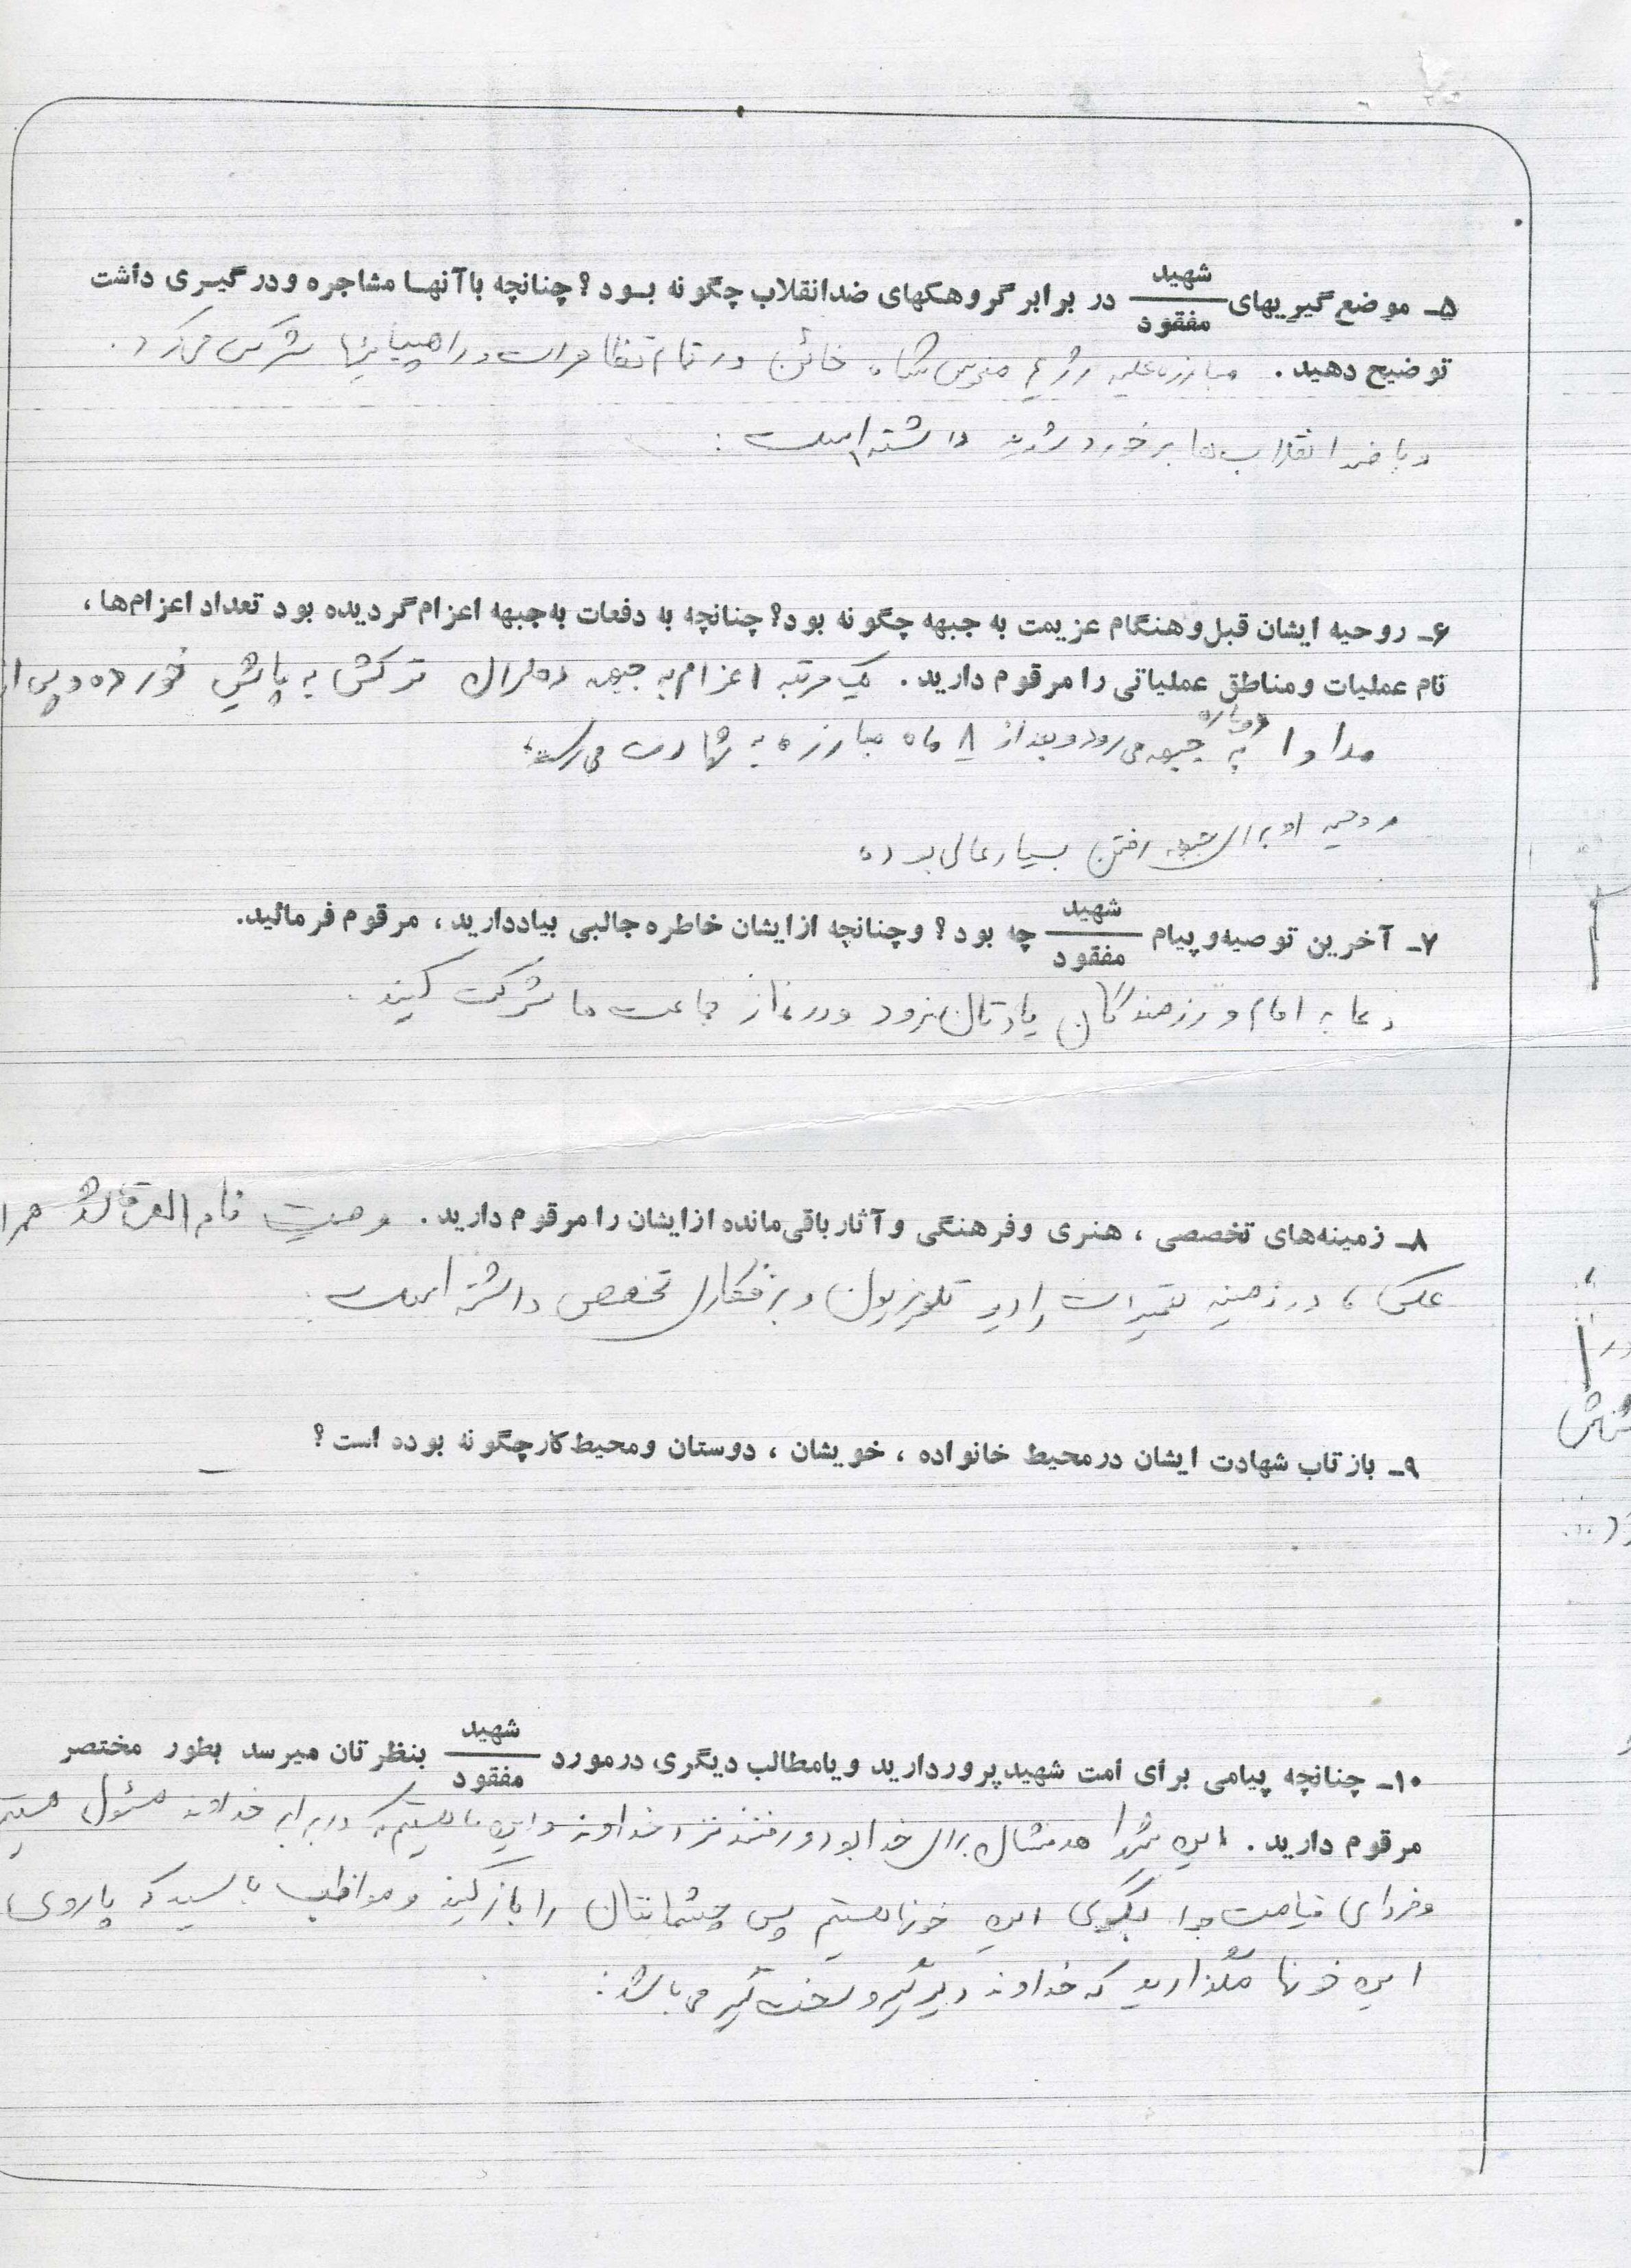 ۵ـ موضع گیریهای شهید/مفقود در برابر گروهکهای ضدانقلاب چگونه بود؟ چنانچه باآنها مشاجره و درگیری داشت
توضیح دهید. مبارزه علیه رژیم منحوس شاه خائن در تمام تظاهرات و راهپیمائیها شرکت می‌کرد.
و با ضد انقلاب‌ها برخورد شدید داشته است:
۶ـ روحیه ایشان قبل و هنگام عزیمت به جبهه چگونه بود؟ چنانچه به دفعات به‌جبهه اعزام گردیده بود تعداد اعزام‌ها،
نام عملیات و مناطق عملیاتی را مرقوم دارید. یک مرتبه اعزام به جبهه ترکش به پایش خورده و پس از
مداوا دوباره به جبهه می‌رود و بعد از ۸ ماه مبارزه به شهادت می‌رسد،
روحیه او برای جبهه رفتن بسیار عالی بوده
۷ـ آخرین توصیه و پیام شهید/مفقود چه بود؟ و چنانچه از ایشان خاطره جالبی بیاد دارید، مرقوم فرمائید.
دعا به امام و رزمندگان یادتان نرود و در نماز جماعت ها شرکت کنید.
۸ـ زمینه‌های تخصصی، هنری و فرهنگی و آثار باقی‌مانده از ایشان را مرقوم دارید. وصیت نامه
عکس، در زمینه تعمیرات رادیو تلویزیون و برقکاری تخصص داشته است.
۹ـ بازتاب شهادت ایشان در محیط خانواده، خویشان، دوستان و محیط کار چگونه بوده است؟ ـ
۱۰ـ چنانچه پیامی برای امت شهید پرور دارید و یا مطالب دیگری در مورد شهید/مفقود بنظرتان میرسد بطور مختصر
مرقوم دارید. این شهدا هدفشان برای خدا بود و رفتند نزد خداوند و این ما هستیم که در برابر خداوند مسئول هستیم
و فردای قیامت جوابگوی این خونها هستیم پس چشمانتان را باز کنید و مواظب باشید که پا روی
این خونها نگذارید که خداوند دیرگیر و سخت گیر می باشد: